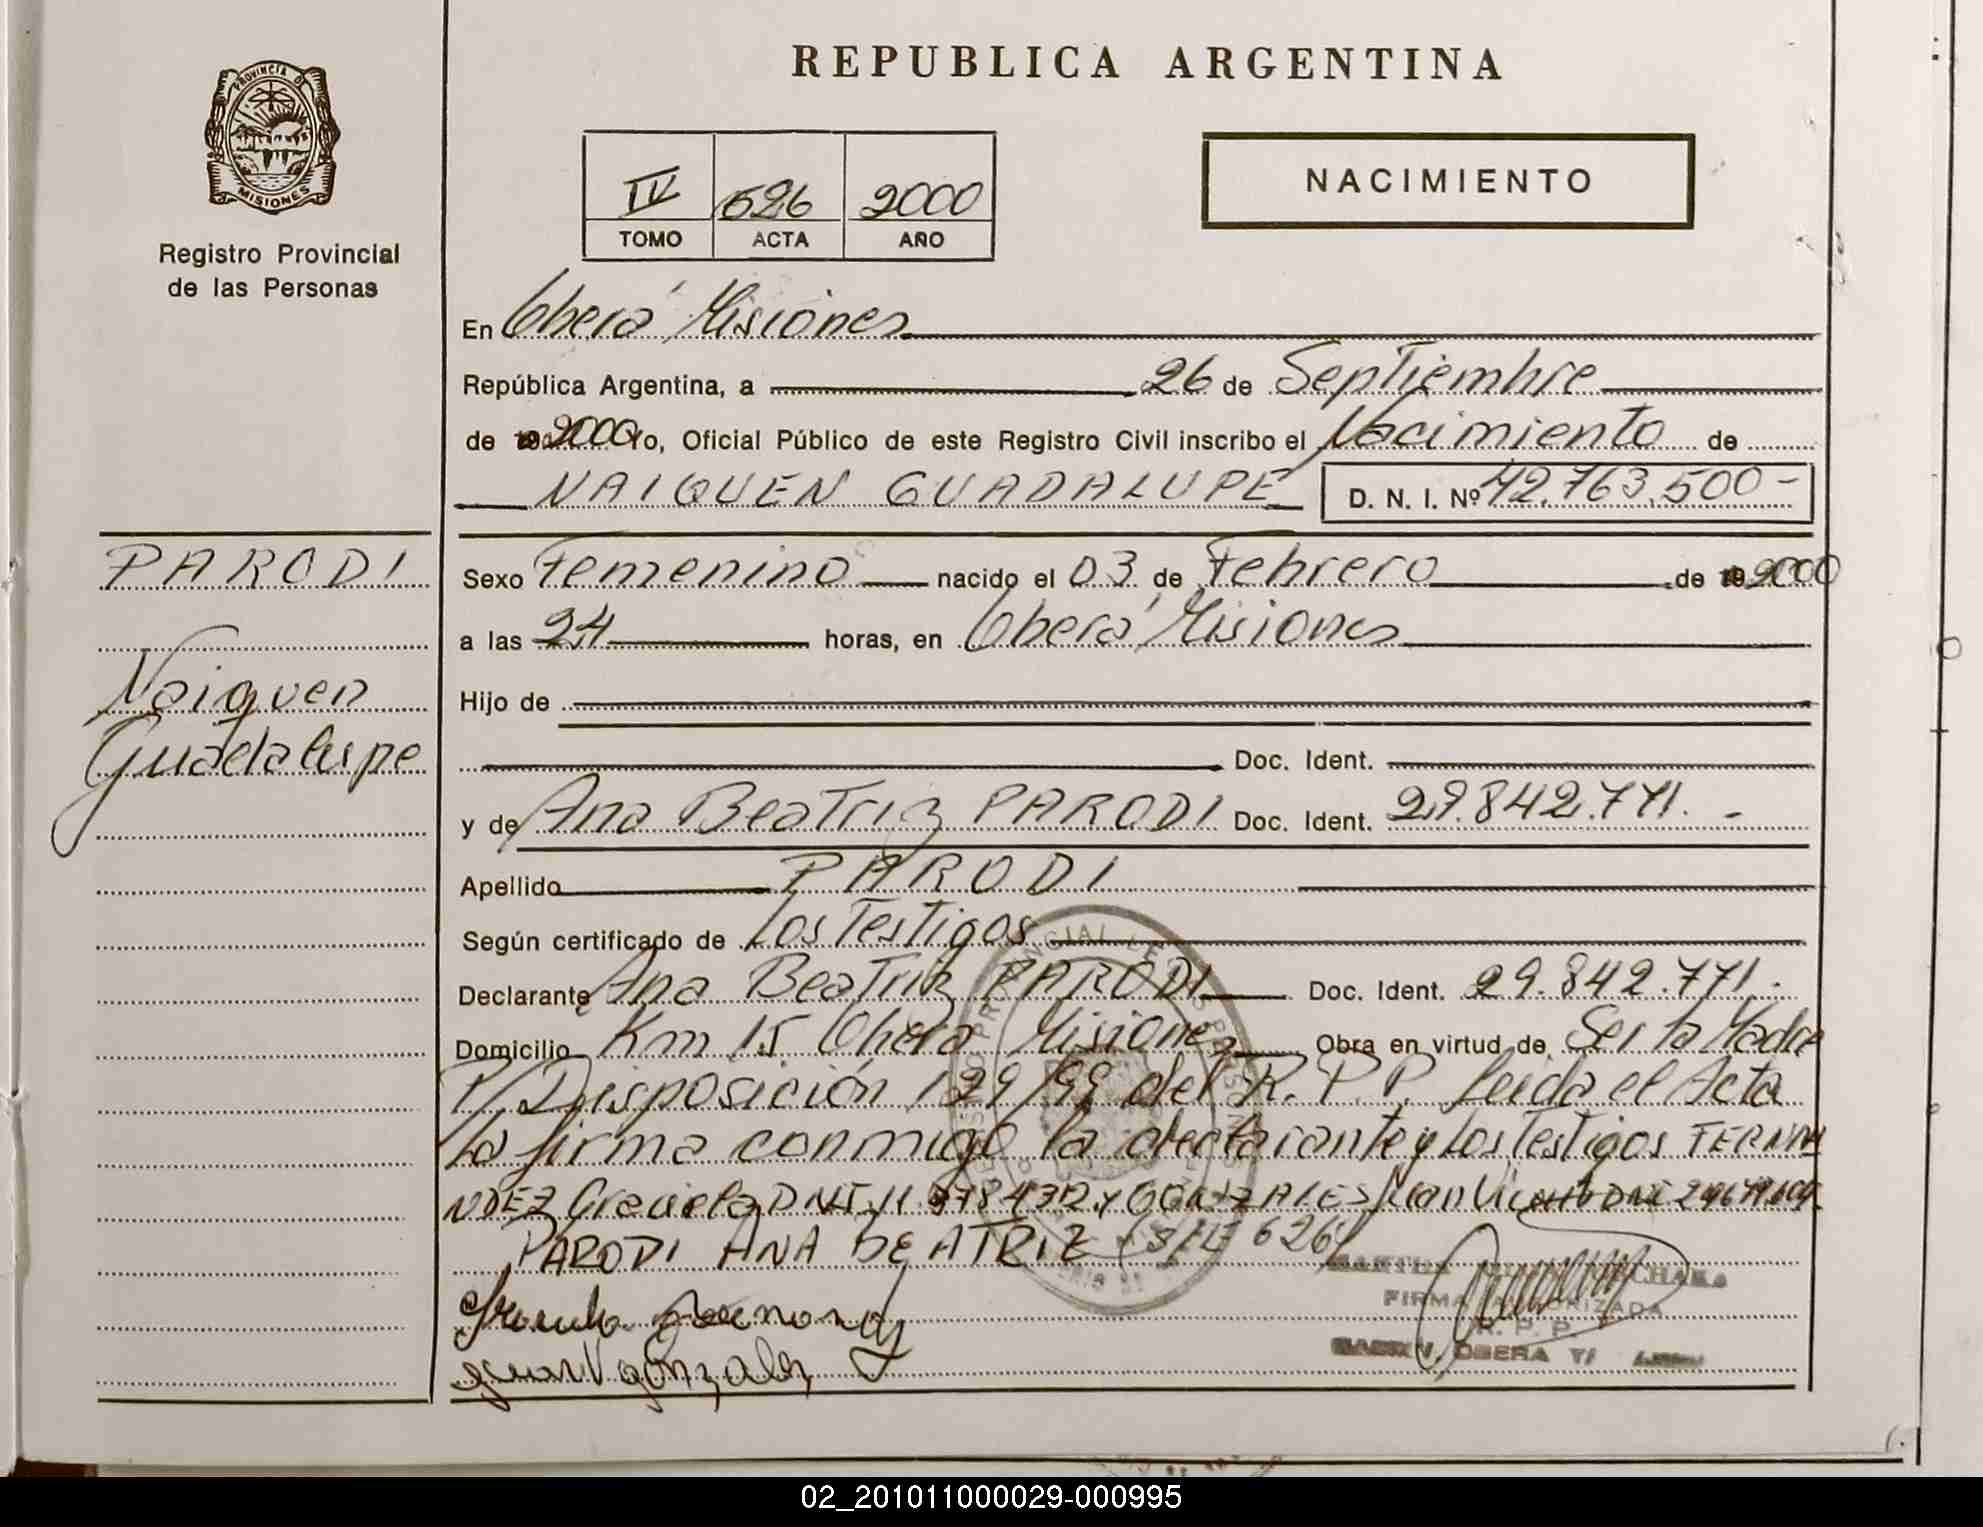 REPUBLICA ARGENTINA
PROVINCIA D
MISIONES
Registro Provincial
de las Personas
IV 626 2000
TOMO ACTA AÑO
NACIMIENTO
En Oberá Misiones
República Argentina, a 26 de Septiembre
de 2000 Yo, Oficial Público de este Registro Civil inscribo el Nacimiento de
NAIQUEN GUADALUPE D. N. I. Nº 42.763.500-
PARODI
Naiquen
Guadalupe
Sexo Femenino nacido el 03 de Febrero de 2000
a las 24 horas, en Oberá Misiones
Hijo de
Doc. Ident.
y de Ana Beatriz PARODI Doc. Ident. 29.842.771.-
Apellido PARODI
Según certificado de Los Testigos
Declarante Ana Beatriz PARODI Doc. Ident. 29.842.771.
Domicilio Km 15 Oberá Misiones Obra en virtud de Ser la Madre
P/Disposición 129/99 del R.P.P. Leida el Acta
la firma conmigo la declarante y los Testigos FERNA
NDEZ Graciela DNI y GONZALES Juan DNI
PARODI ANA BEATRIZ S/E 626
FIRMA AUTORIZADA
R. P. P.
OBERA
02_201011000029-000995